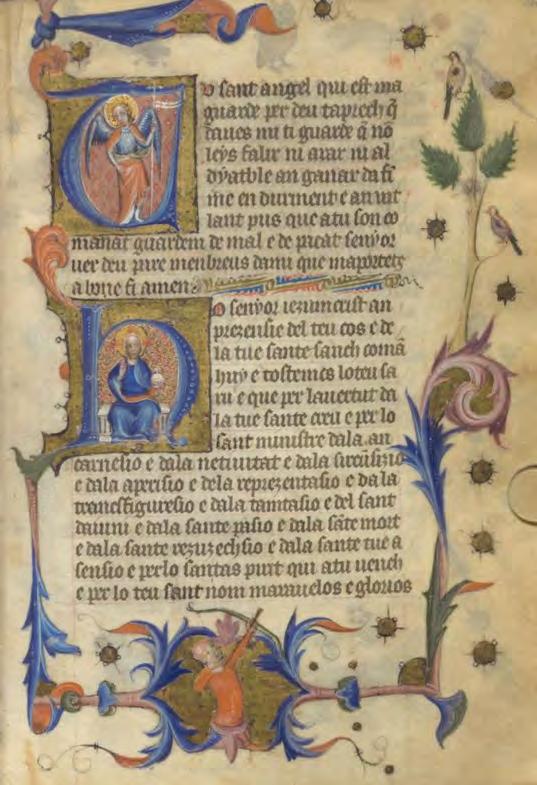 u sant angel qui est ma
guarde per deu taprech q̃
daues mi ti guarde q̃ nō
leys falir ni arar ni al
dyatble an ganar da fi
me en durment e an uit
lant pus que atu son co
manat guardem de mal e de picat senyor
uer deu pare menbreus damu que maportetz
a bone fi amen
o senyor iezu mcrist an
prezensie del teu cos e de
la tue sante sanch comā
huy e tostemes lo teu sa
ni e que per lauertut da
la tue sante creu e per lo
sant ministre dala an
carnesio e dala netiuitat e dala sircūsizio
e dala aperisio e dela reprezentasio e dala
transfiguresio e dala tamtasio e del sant
daiuni e dala sante pasio e dala sāte mort
e dala sante rezuzechsio e dala sante tue a
sensio e per lo santas pirt qui atu uench
e per lo teu sant nom marauelos e glorios